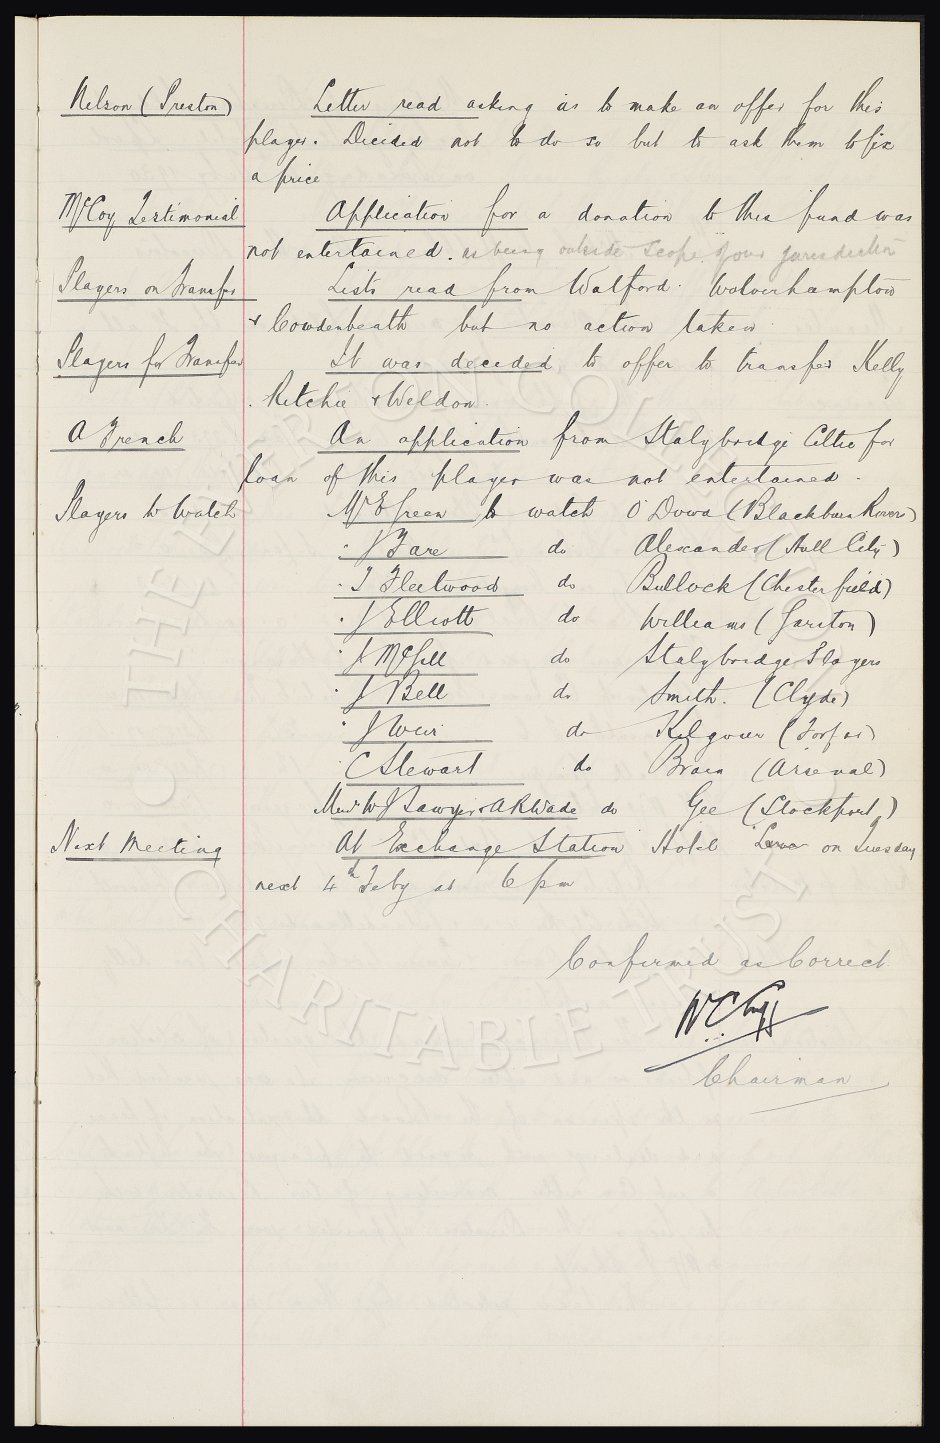 Nelson (Preston) Letter read asking us to make an offer for this
player. Decided not to do so but to ask them to fix
a price
McCoy Testimonial Application for a donation to this fund was
not entertained. as being outside scope of our jurisdiction
Players on Transfer Lists read from Watford. Wolverhampton
& Cowdenbeath but no action taken
Players for Transfer It was decided to offer to transfer Kelly
Ritchie & Weldon.
A French An application from Stalybridge Celtic for
loan of this player was not entertained.
Players to Watch Mr E Green to watch O'Dowd (Blackburn Rovers)
" J Fare do Alexander (Hull City)
" T Fleetwood do Bullock (Chesterfield)
" J Elliott do Williams (Garston)
" J McGill do Stalybridge Players
" J Bell do Smith. (Clyde)
" J Weir do Kilgour (Forfar)
C Stewart do Brain (Arsenal)
Messrs W J Sawyer & A R Wade do Gee (Stockport)
Next Meeting At Exchange Station Hotel on Tuesday
next 4th Feby at 6 pm
Confirmed as Correct
W C Cuff
Chairman
THE EVERTON COLLECTION
CHARITABLE TRUST